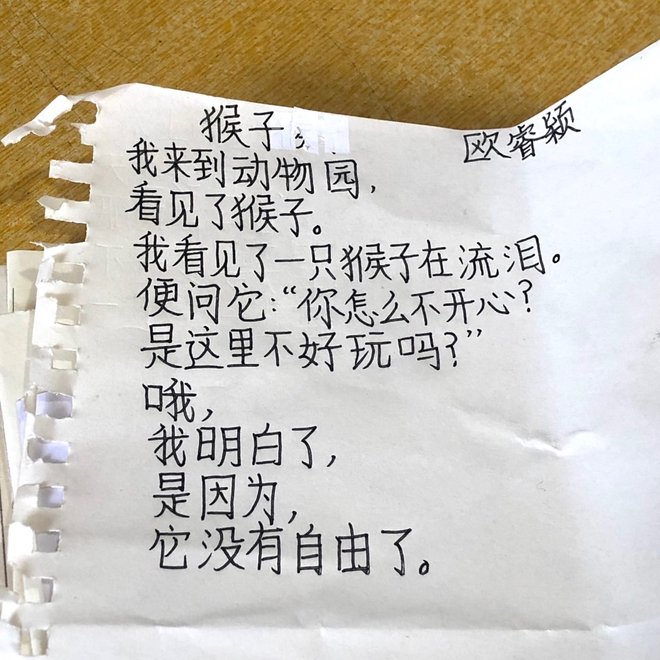 猴子
欧睿颖
我来到动物园，
看见了猴子。
我看见了一只猴子在流泪。
便问它：“你怎么不开心？
是这里不好玩吗？”
哦，
我明白了，
是因为，
它没有自由了。